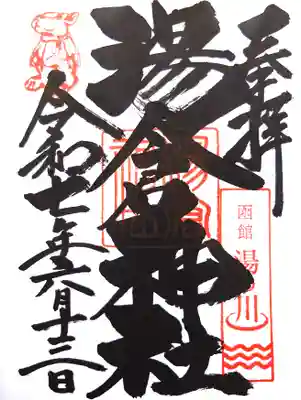 奉拝
函館 湯の川
湯倉神社
令和七年六月十三日